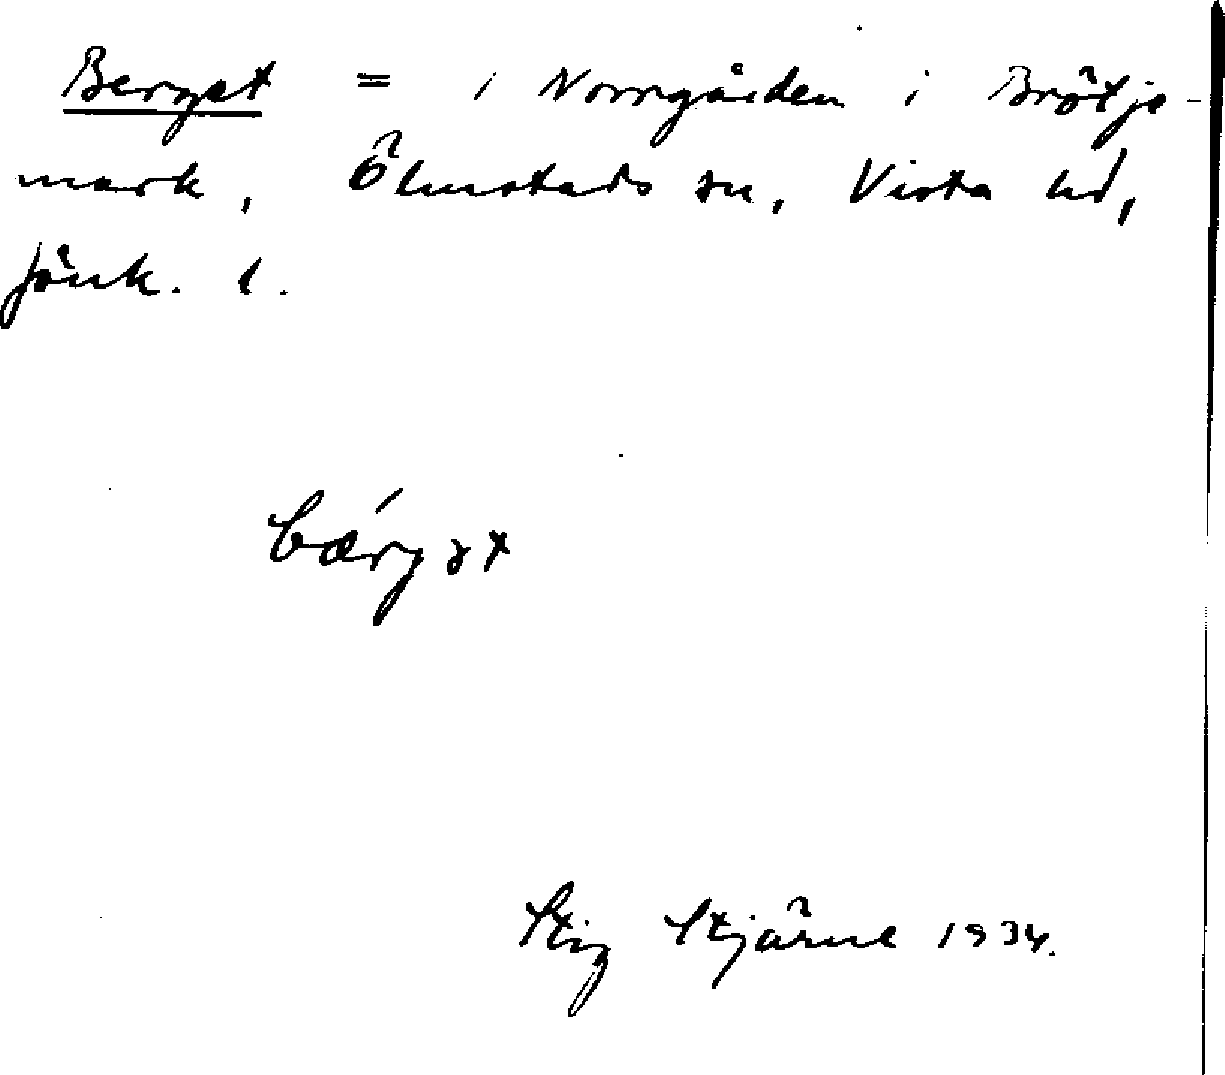 Berget = i Norrgården i Brötje-
mark, Ölmstads sn, Vista hd,
Jönk. l.
bǽrgət
Stig Stjärne 1934.